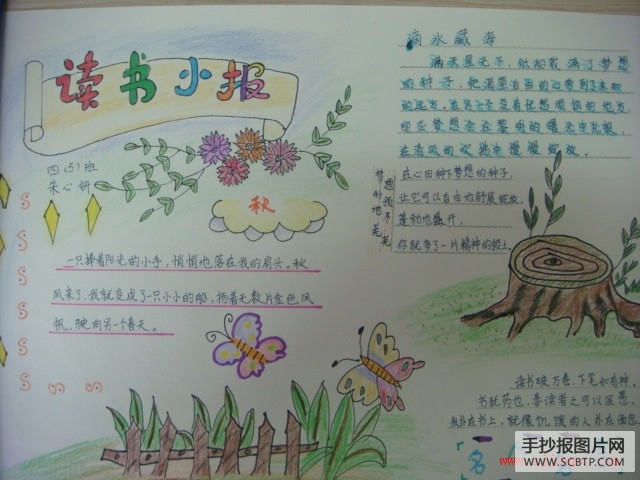 读书小报
四(5)班
朱心妍
秋
一只捧着阳光的小手，悄悄地落在我的肩头。秋
风来了，我就变成了一只小小的船，扬着无数片金色风
帆，驶向另一个春天。
滴水藏海
满天星光下，
的种子，把渴望自由的心带到了未知
的远方。在另一个没有忧愁烦恼的地方，
那些梦想会在黎明的曙光中扎根，
在清风的
在心田种下梦想的种子，
让它可以自由地舒展绽放，
蓬勃地盛开，
你就多了一片精神的领土。
读书破万卷，下笔如有神。
书犹药也，善读者之可以医愚。
我扑在书上，就像饥饿的人扑在面包
名
手抄报图片网
WWW.SCBTP.COM